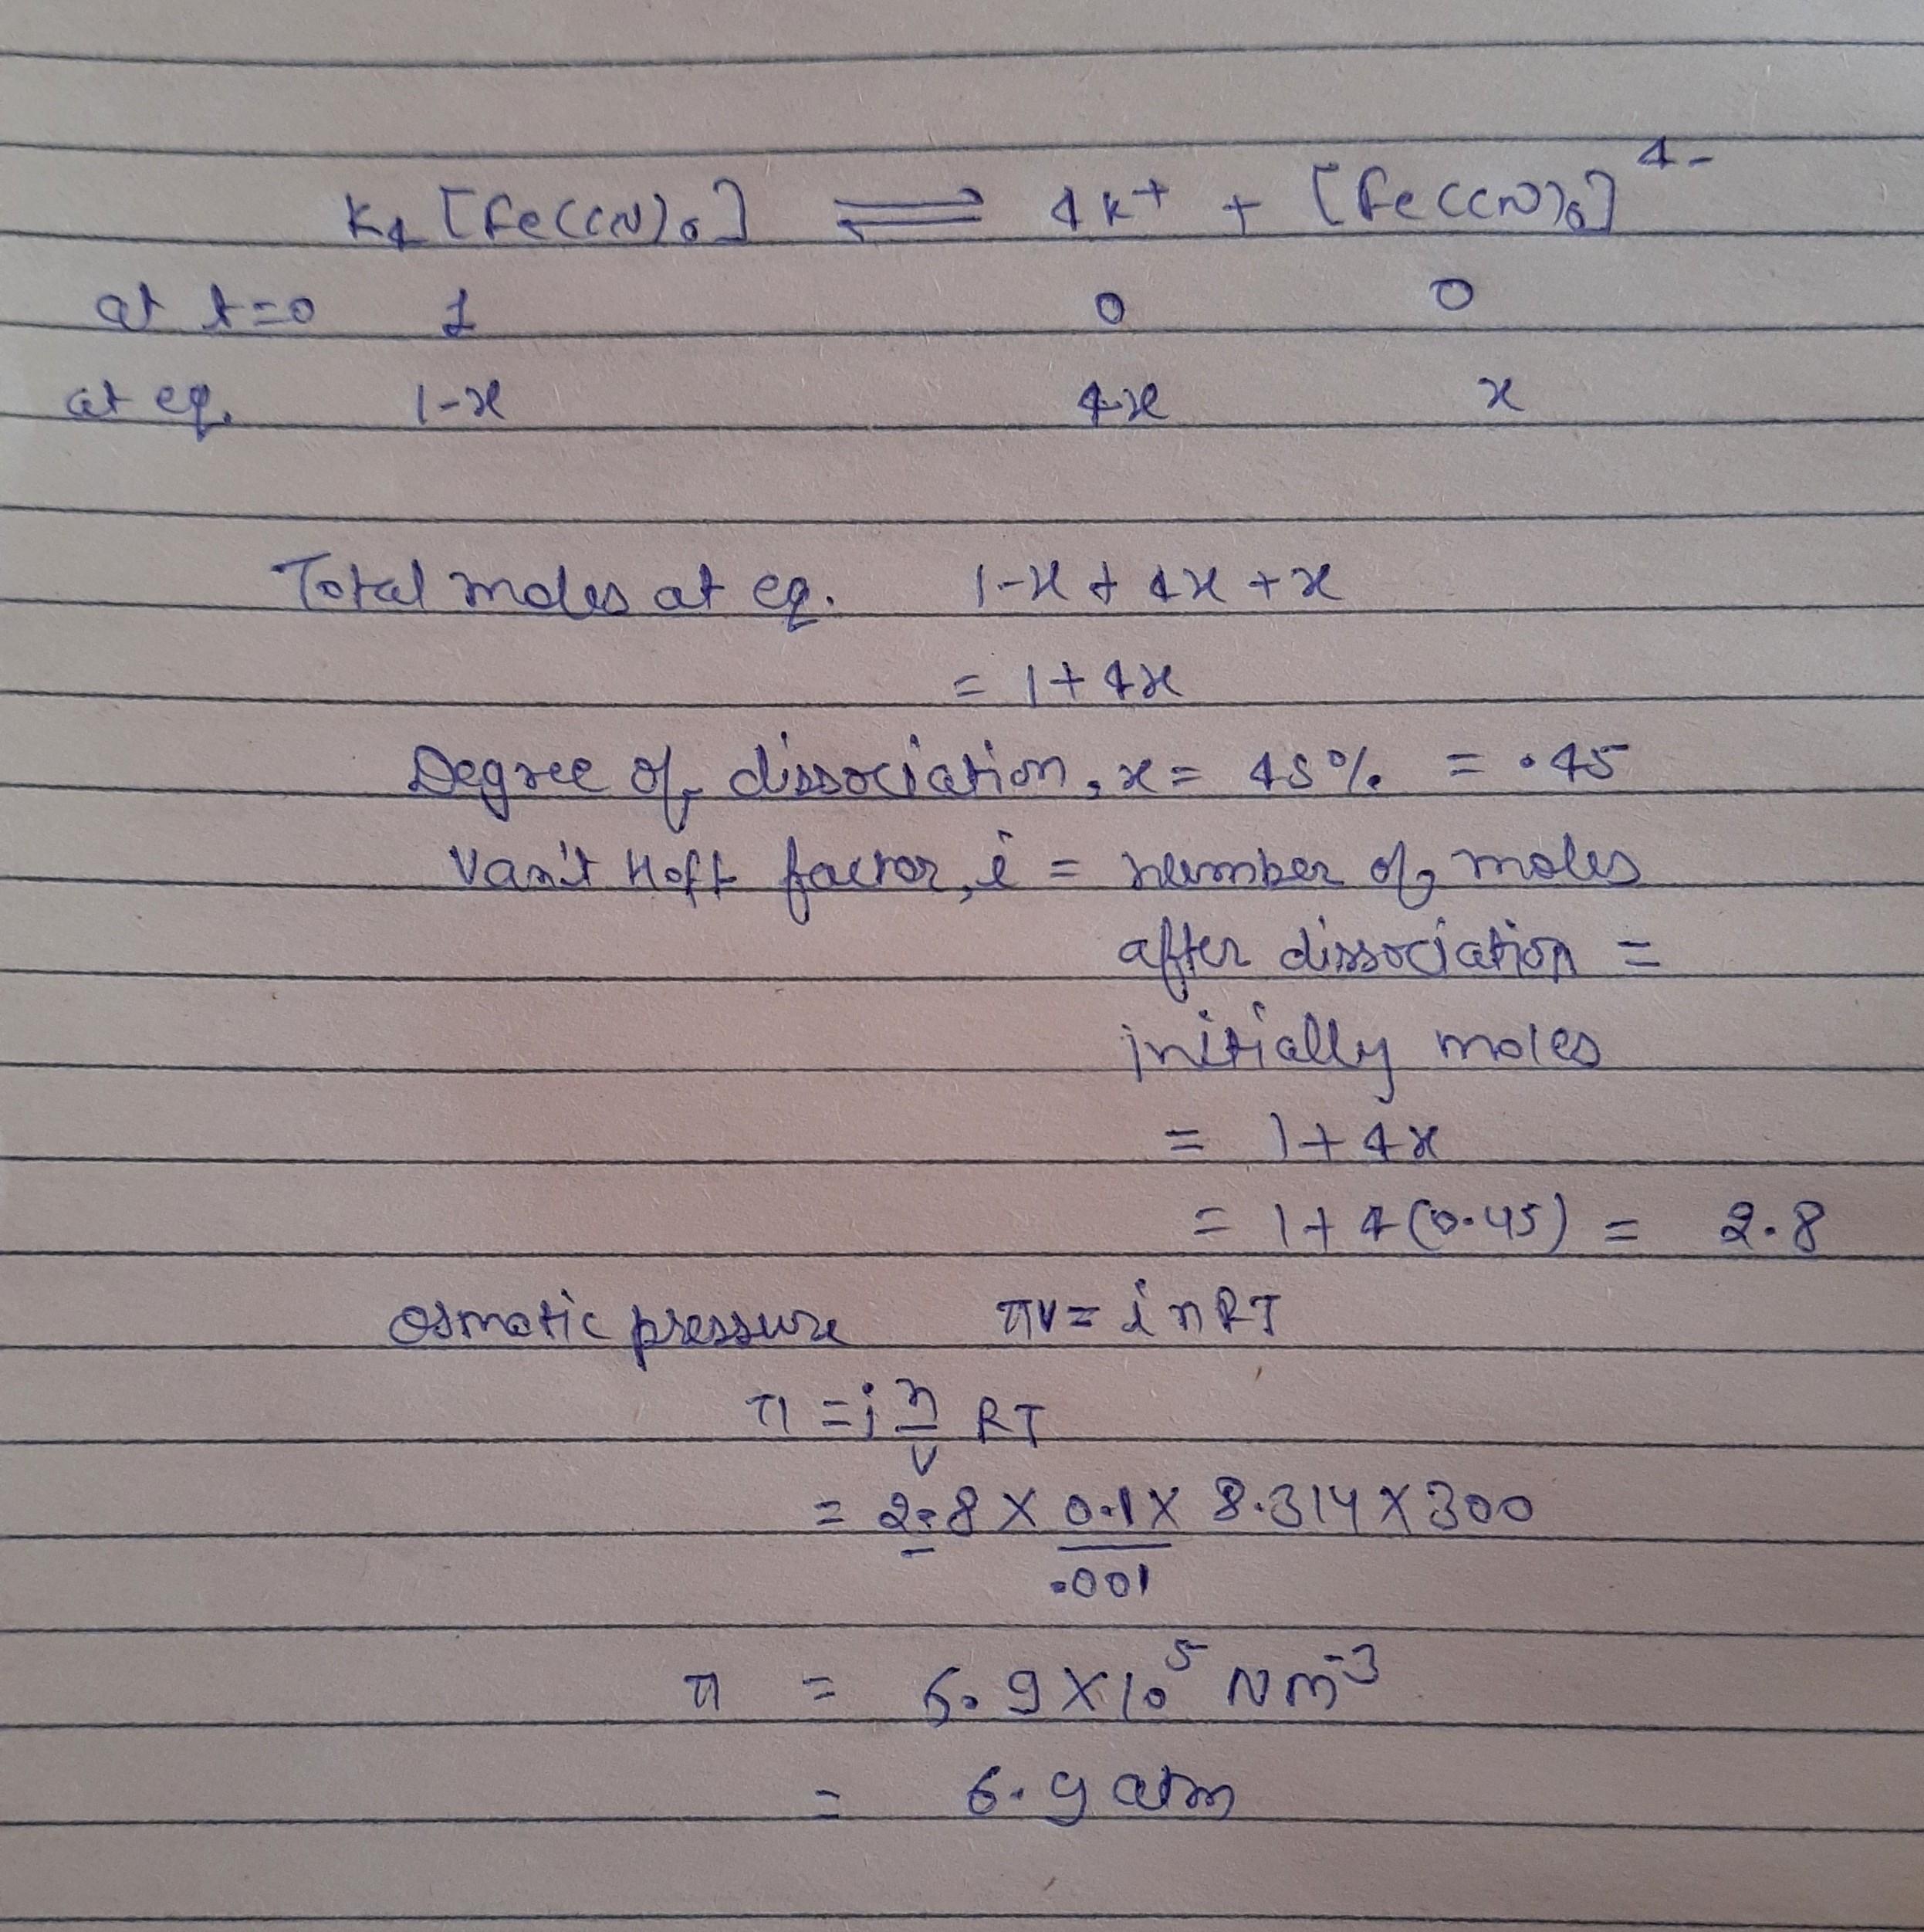 K4[Fe(CN)6] ⇌ 4K+ + [Fe(CN)6]4-
at t=0 1 0 0
at eq. 1-x 4x x
Total moles at eq. 1-x + 4x + x
= 1+4x
Degree of dissociation, x = 45% = .45
Van't Hoff factor, i = number of moles
after dissociation =
initially moles
= 1+4x
= 1+4(0.45) = 2.8
Osmotic pressure πV = inRT
π = i n/V RT
= 2.8 × 0.1/.001 × 8.314 × 300
π = 6.9 × 10^5 Nm-3
= 6.9 atm